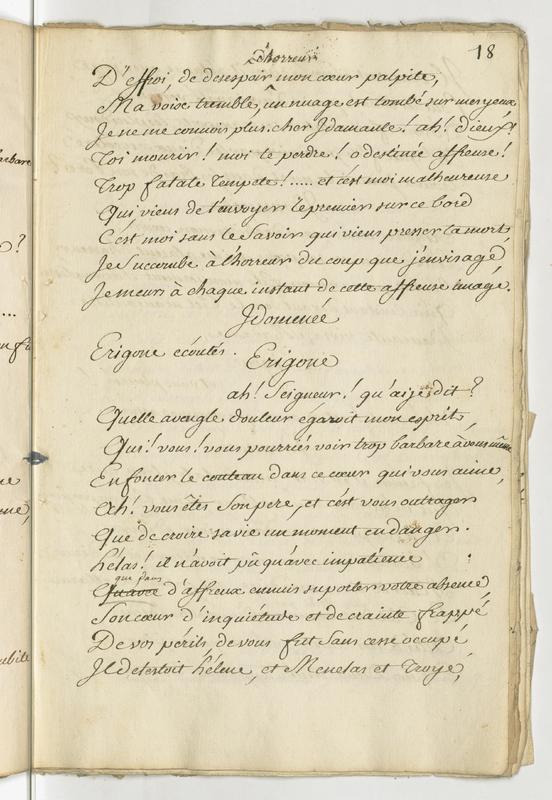 18
d'horreur
D'effroi, de desespoir mon cœur palpite,
Ma voix tremble, un nuage est tombé sur mes yeux
Je ne me connois plus. cher Idamante! ah! dieux!
Toi mourir! moi te perdre! o destinée affreuse!
Trop fatale Tempete!..... et c'est moi malheureuse
Qui viens de t'envoyer le premier sur ce bord
C'est moi sans le Savoir qui viens presser ta mort,
Je Sucombe à l'horreur du coup que j'envisage,
Je meurs à chaque instant de cette affreuse image.
Idomenée
Erigone ecoutés.
Erigone
ah! Seigneur! qu'ai je dit?
Quelle aveugle douleur egaroit mon esprit,
Qui! vous! vous pourriés voir trop barbare à vous même
Enfoncer le couteau dans ce cœur qui vous aime,
Ah! vous êtes Son pere, et c'est vous outrager
Que de croire sa vie un moment en danger.
hélas! il n'avoit pû qu'avec impatience
que dans
Qu'avec d'affreux ennuis suporter votre absence,
Son cœur d'inquiétude et de crainte frappé
De vos périls, de vous fut Sans cesse occupé
Il detestoit hélene, et Menelas et Troye,